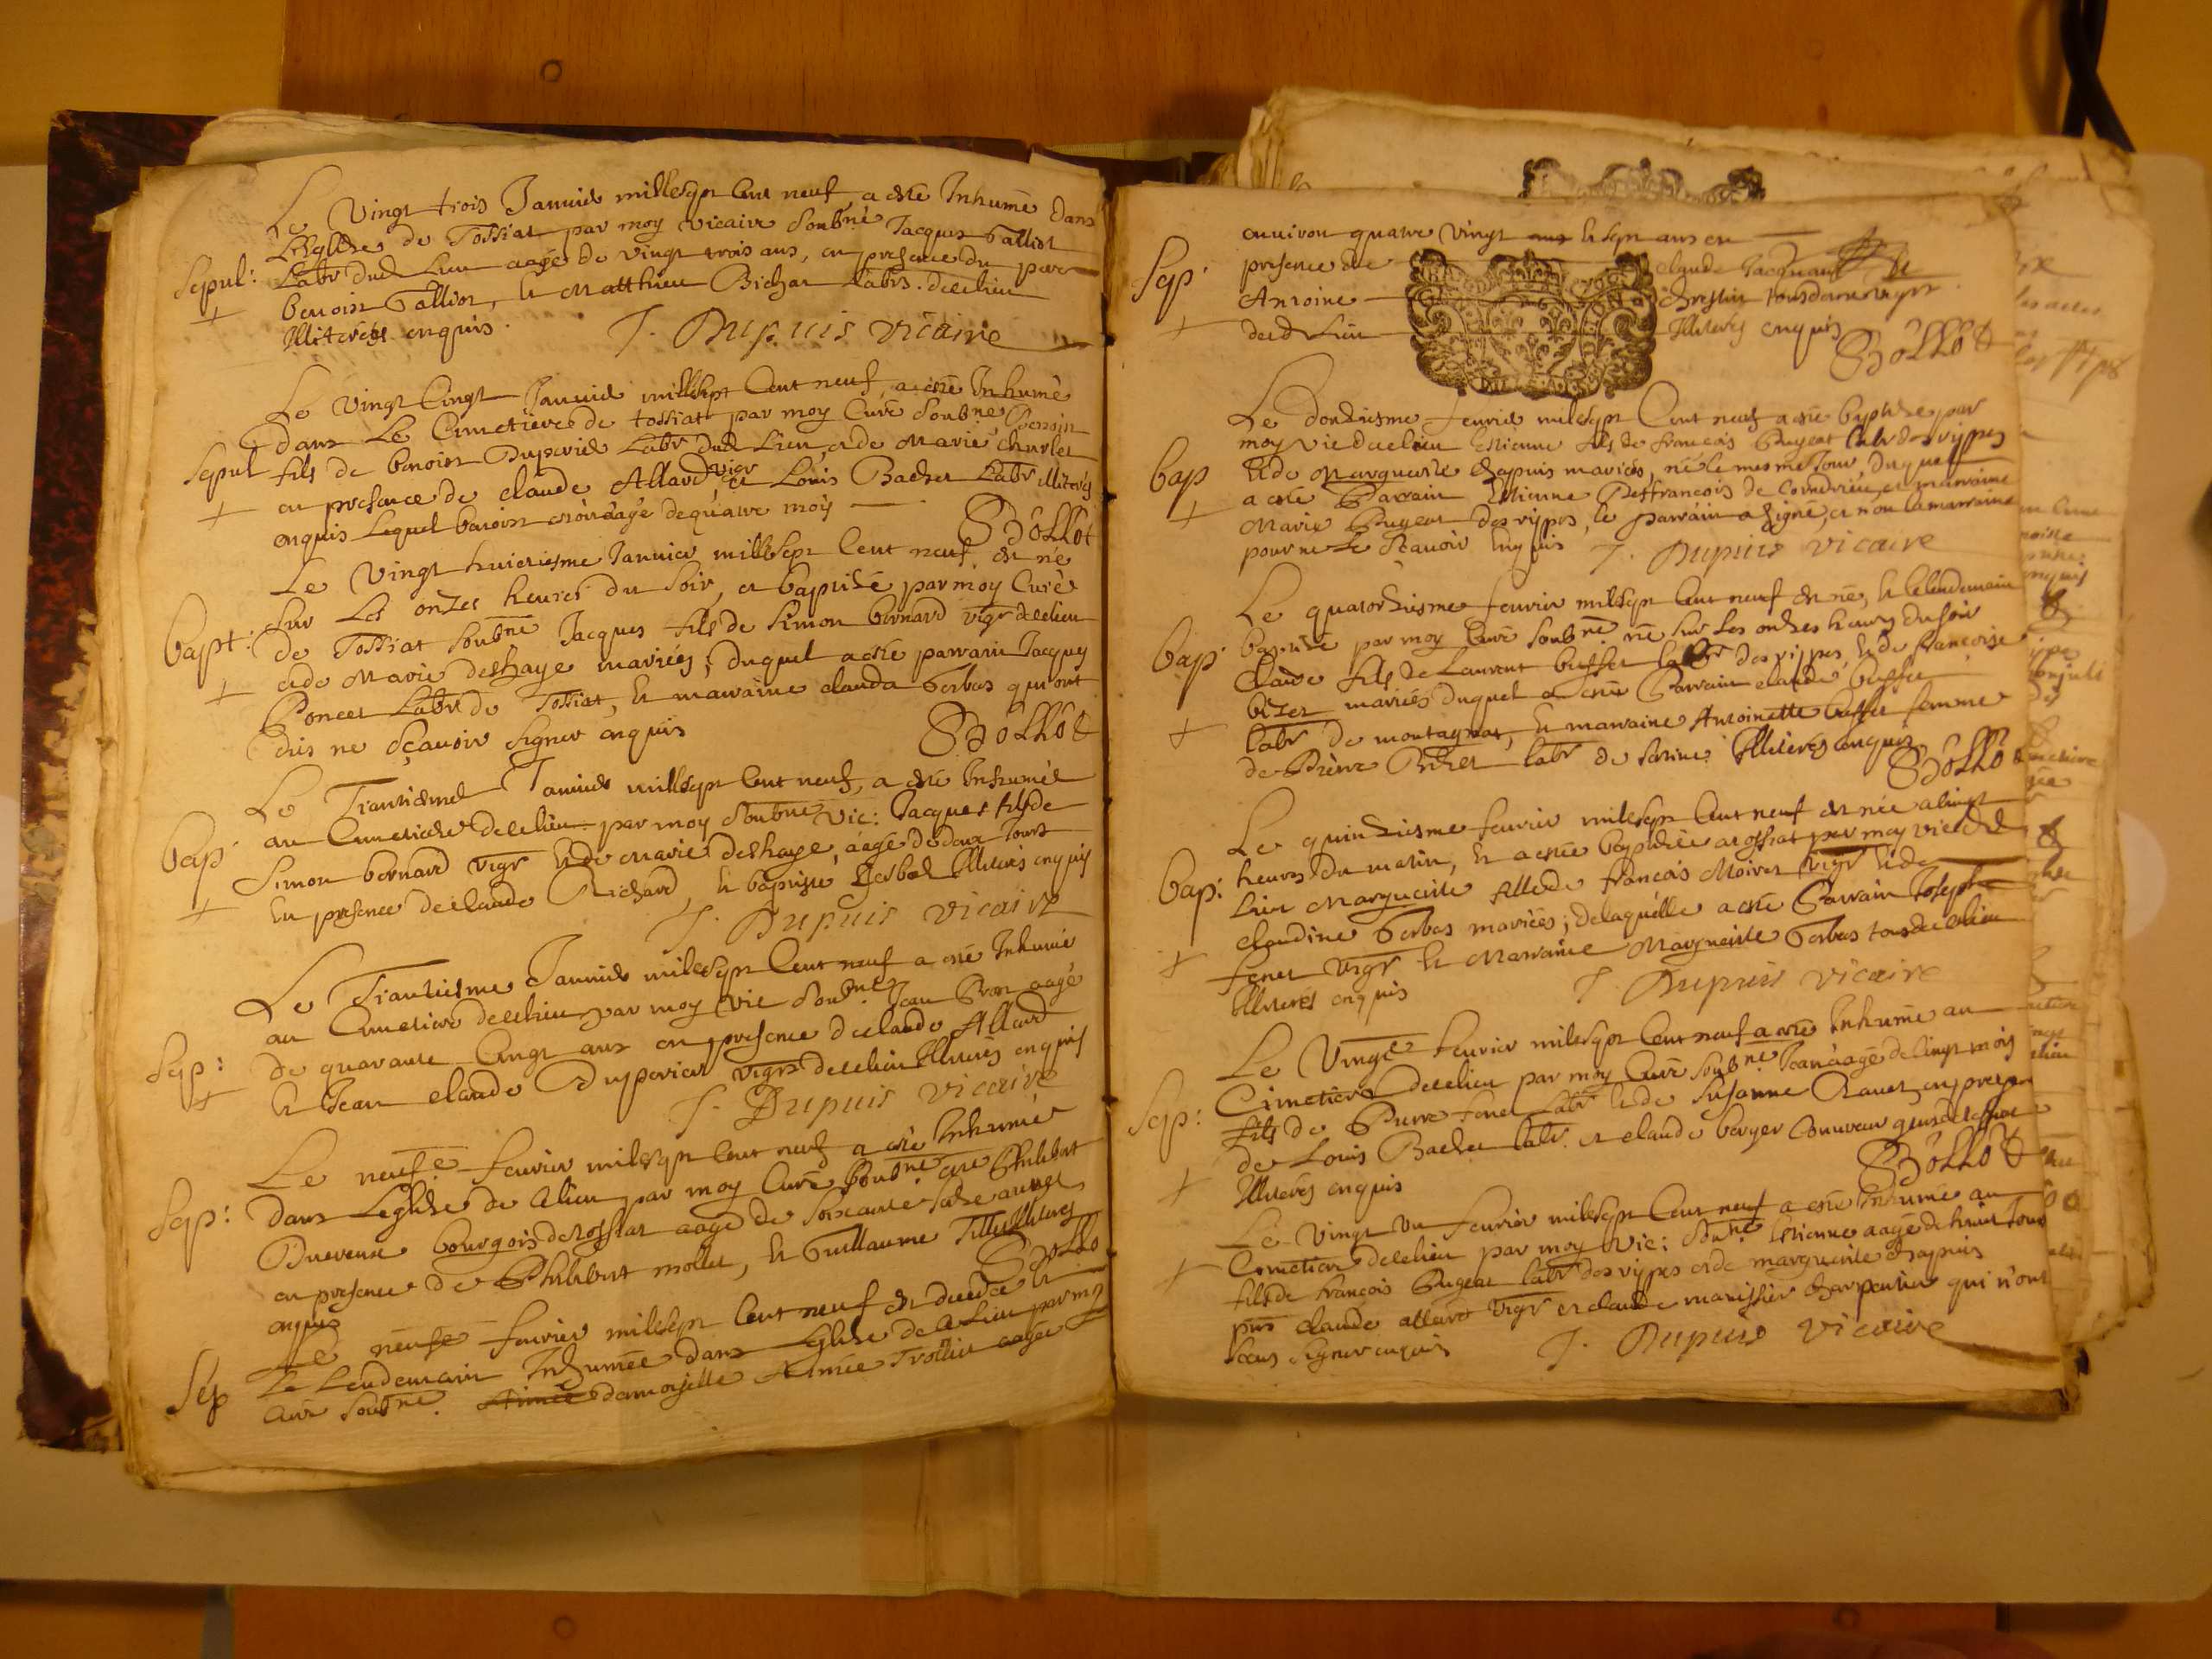 Le Vingt trois Januier mille sept Cent neuf a esté Inhumé dans
L'Eglise de Tossiat par moy vicaire soubne Jacques Galliot
Sepul: Labr dud Lieu aagé de vingt trois ans, en presence du pere
benoist Galliot, et Matthieu Bichat Labrs. decelieu
Illiterés enquis. J. Dupuis vicaire
Le vingt Cinqt Januier mille sept Cent neuf a esté Inhumé
dans Le Cimetiere de tossiat par moy Curé soubne, Benoist
Sepul fils de benoist Duperier Labr dud Lieu, et de Marie charlet
en presence de claude Allard vigr et Louis Bachet Labr illiterés
enquis Lequel benoist estoit aagé de quatre moys
Bollot
Le Vingt huictiesme Januier mille sept Cent neuf est né
sur Les onzes heures du soir, et baptisé par moy Curé
bapt: de Tossiat soubne Jacques fils de Simon bernard vigr decelieu
et de Marie deshaye mariées; duquel a esté parrain Jacques
Poncet Labr de Tossiat, et marraine clauda Gerbas qui ont
dis ne sçauoir signer enquis
Bollot
Le Trantiesme Januier mille sept Cent neuf, a esté Inhumé
au Cimetiere decelieu par moy soubne vic: Jacques fils de
bap: Simon bernard vigr et de Marie deshaye, aagé de deux Jours
En presence de claude Richard, et baptiste Gerbas Illiterés enquis
J. Dupuis vicaire
Le Trantiesme Januier mille sept Cent neuf a esté Inhumé
au Cimetiere decelieu par moy vic soubne Jean aagé
Sep: de quarante Cinqt ans en presence de claude Allard
et Jean claude Duperier vigrs decelieu Illiterés enquis
J. Dupuis vicaire
Le neufe feurier mille sept Cent neuf a esté Inhumé
dans L'eglise de ce lieu par moy Curé soubne Philibert
Sep: bourgois de tossiat aagé de soixante
en presence de Philibert mollet, et Guillaume Illiteres
enquis Bollot
Le neufe feurier mille sept Cent neuf est decedée et
Le Lendemain Inhumée dans L'eglise de ce Lieu par moy
Sep Curé soubne. Aimée damoiselle Aimée Trollier aagée
enuiron quatre vingt ans et sept ans en
Sep: presence de claude Jacquand
Antoine chrestin tous deux
dud Lieu Illiteres enquis
Bollot
Le douziesme feurier mille sept Cent neuf a esté baptisé par
moy vic decelieu Estienne fils de françois Pugeat labr des rippes
bap et de Marguerite chapuis mariés, né le mesme Jour, duquel
a esté Parrain Estienne Desfrancois de Corndrieu, et marraine
Marie Pugeat des rippes, le parrain a signé, et non la marraine
pour ne le scauoir enquis J. Dupuis vicaire
Le quatorziesme feurier mille sept Cent neuf est né, et le lendemain
baptisé par moy Curé soubne né sur Les onzes heures du soir
bap: Claude fils de Laurent buffet labr des rippes, et de françoise
bizet mariés duquel a esté Parrain claude buffet
labr de montagnat, et marraine Antoinette buffet femme
de Pierre labr de Illiterés enquis
Bollot
Le quinziesme feurier mille sept Cent neuf est née a Cinqt
heures du matin, et a esté baptisée a tossiat par moy vic dud
bap: Lieu Marguerite fille de françois Moiret vigr et de
claudine Gerbas mariées; de laquelle a esté Parrain Joseph
fenet vigr et Marraine Marguerite Gerbas tous decelieu
Illiterés enquis J. Dupuis vicaire
Le Vingte feurier mille sept Cent neuf a esté Inhumé au
Cimetiere decelieu par moy Curé soubne Jean aagé de Cinqt mois
Sep: fils de Pierre fenet labr et de Susanne Rauet, en presen
de Louis Bachet labr. et claude berger
Illiterés enquis Bollot
Le Vingt un feurier mille sept Cent neuf a esté Inhumé au
Cimetiere decelieu par moy vic: soubne Estienne aagé de huict Jour
fils de françois Pugeat labr des rippes et de marguerite chapuis
pnts claude allard vigr et claude marissier charpentier qui n'ont
sceus signer enquis J. Dupuis vicaire